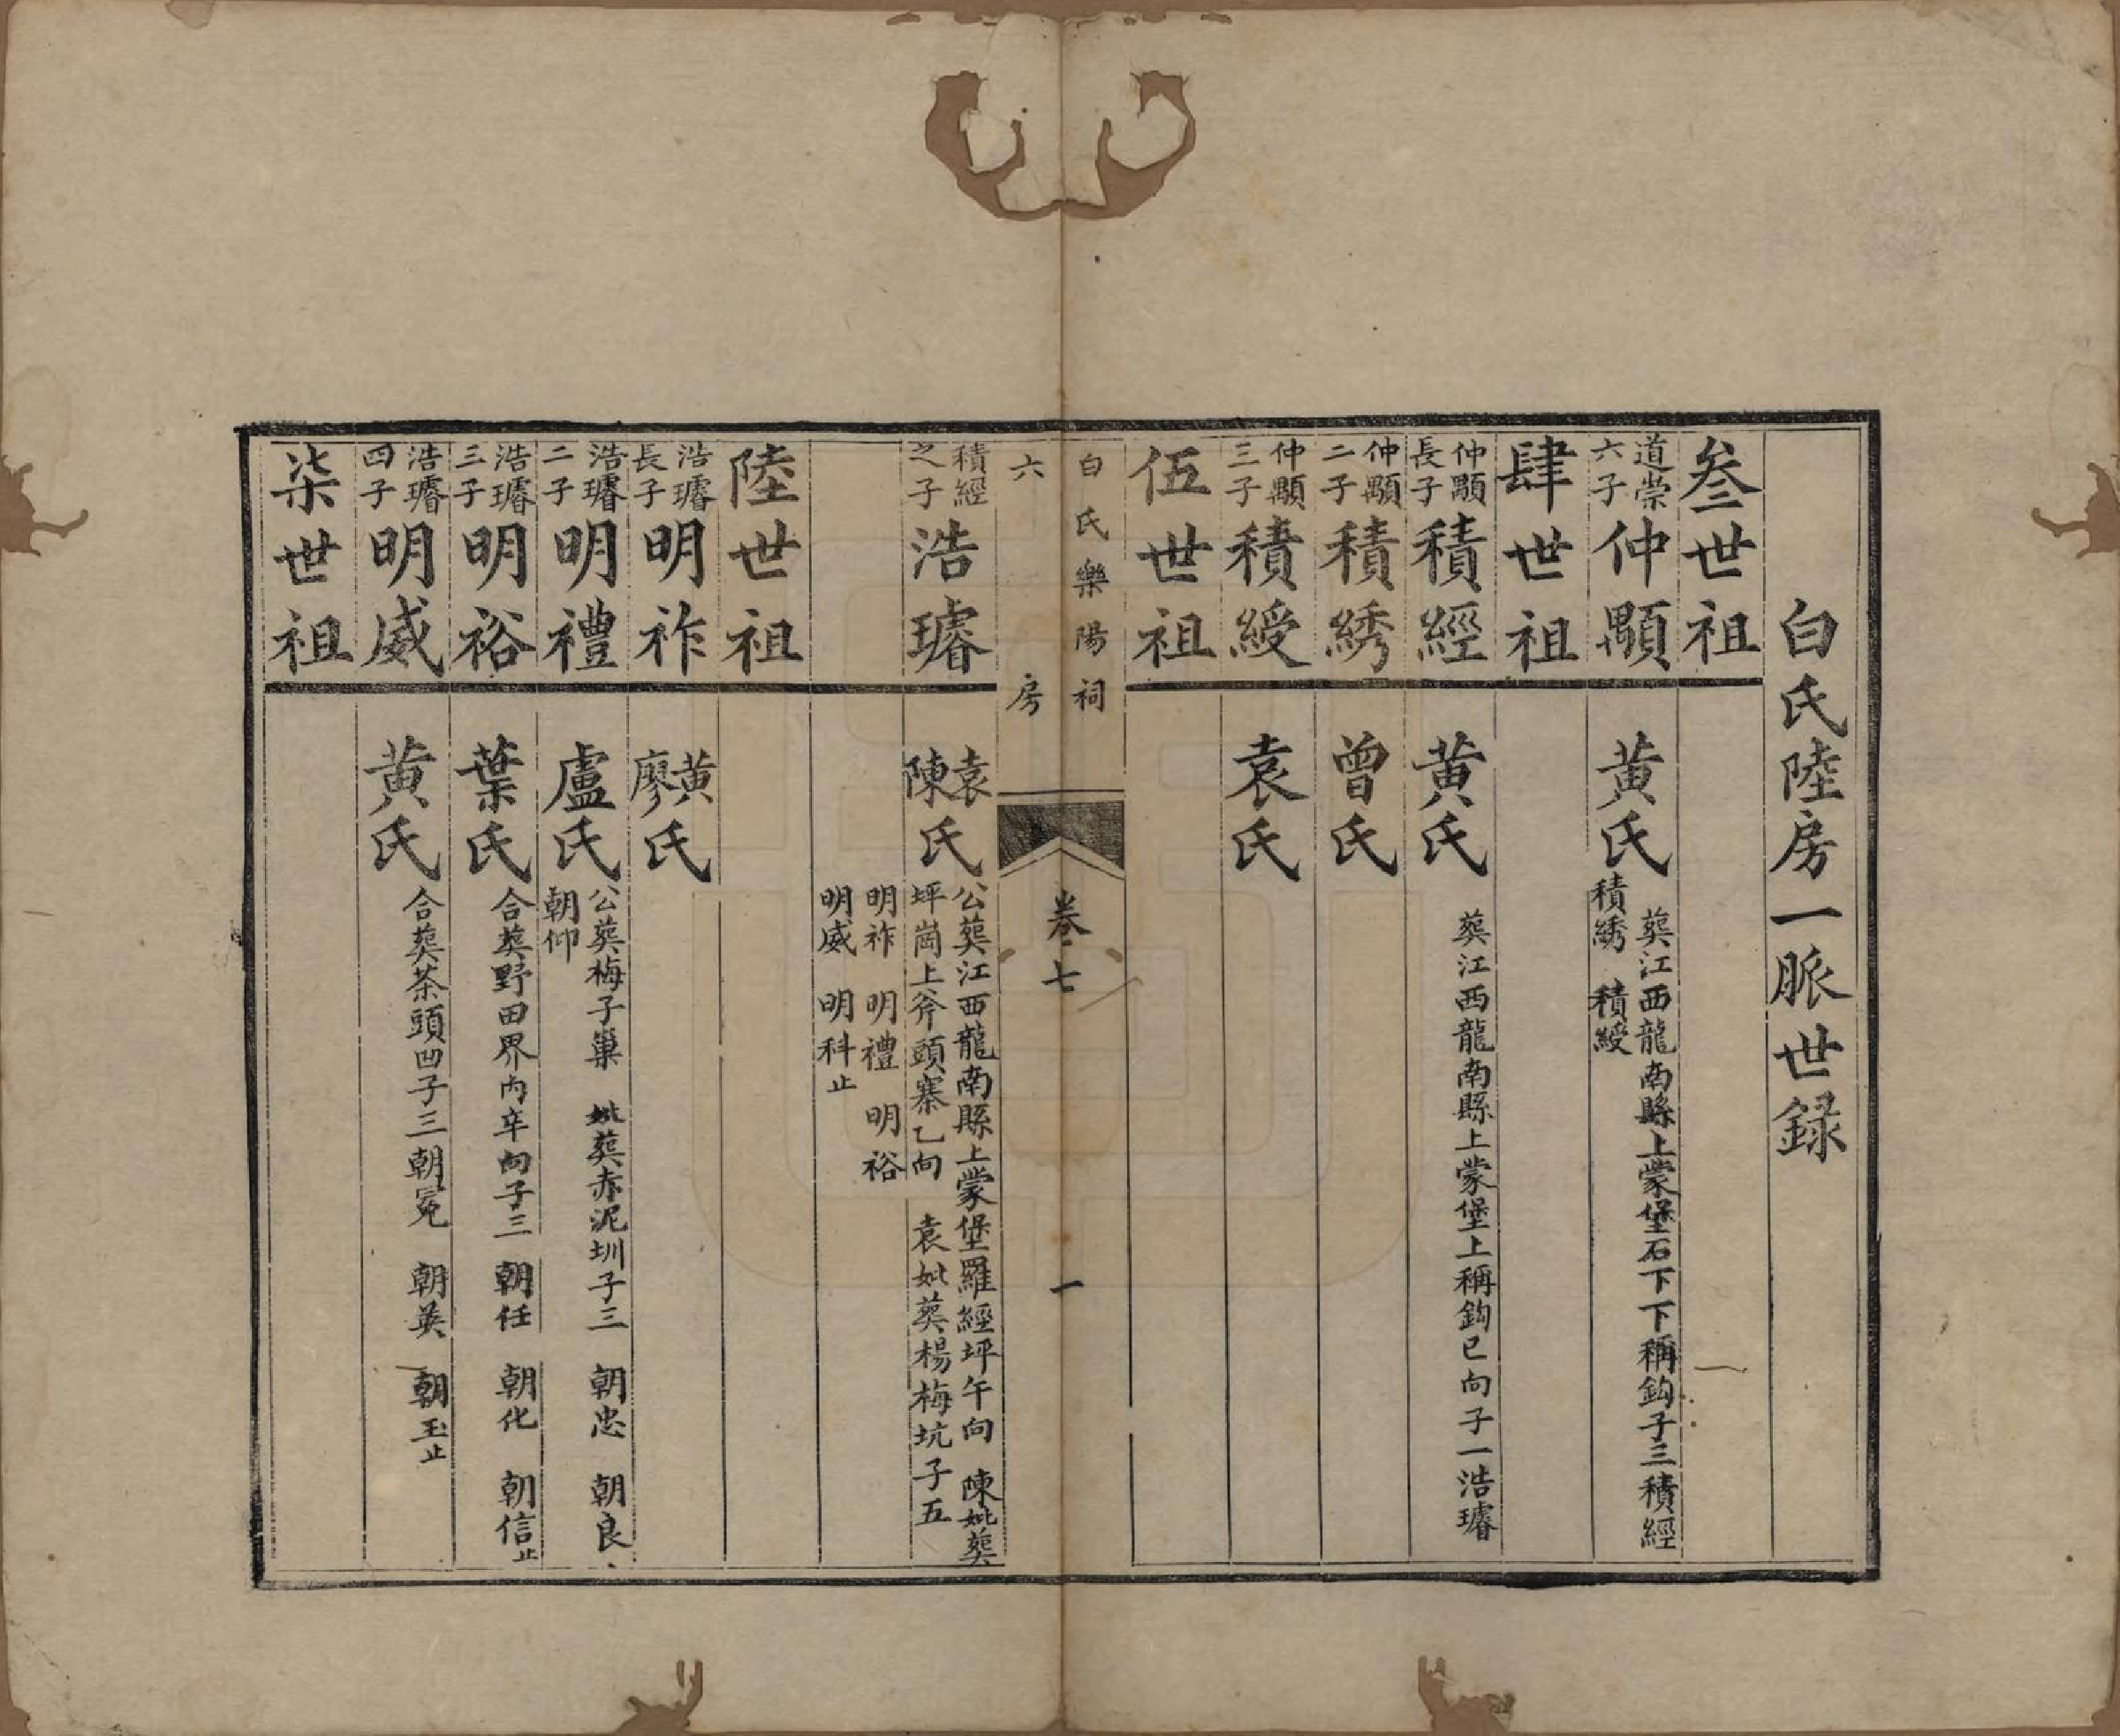 白氏陸房一脈世録
叄世祖
道崇六子
仲顒
黃氏
葬江西龍南縣上蒙堡石下下稱鈎子三積經
積綉 積綬
肆世祖
仲顒長子
積經
黃氏
葬江西龍南縣上蒙堡上稱鈎已向子一浩璿
仲顒二子
積綉
曾氏
仲顒三子
積綬
袁氏
伍世祖
白氏樂陽祠
六房
卷七
一
積經之子
浩璿
袁陳氏
公葬江西龍南縣上蒙堡羅經坪午向 陳妣葬
坪崗上斧頭寨乙向 袁妣葬楊梅坑子五
明祚 明禮 明裕
明威 明科止
陸世祖
浩璿長子
明祚
黃廖氏
浩璿二子
明禮
盧氏
公葬梅子巢 妣葬赤泥圳子三 朝忠 朝良
朝仰
浩璿三子
明裕
葉氏
合葬野田界內卒向子三 朝任 朝化 朝信止
浩璿四子
明威
黃氏
合葬茶頭凹子三朝冕 朝英 朝玉止
柒世祖